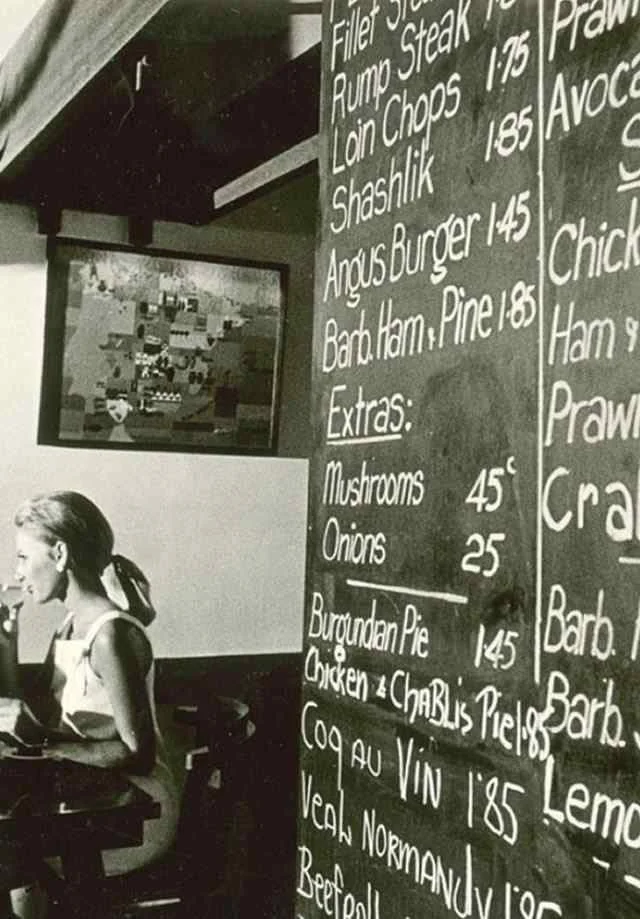 Fillet
Rump Steak
Loin Chops 1.75
Shashlik 1.85
Angus Burger 1.45
Barb. Ham & Pine 1.85
Extras:
Mushrooms 45c
Onions 25
Burgundian Pie 1.45
Chicken & CHABLis Pie 1.85
Coq Au Vin 1.85
Veal NORMANdy
Prawn
Avoca
S
Chick
Ham &
Prawn
Cra
Barb.
Barb.
Lemo